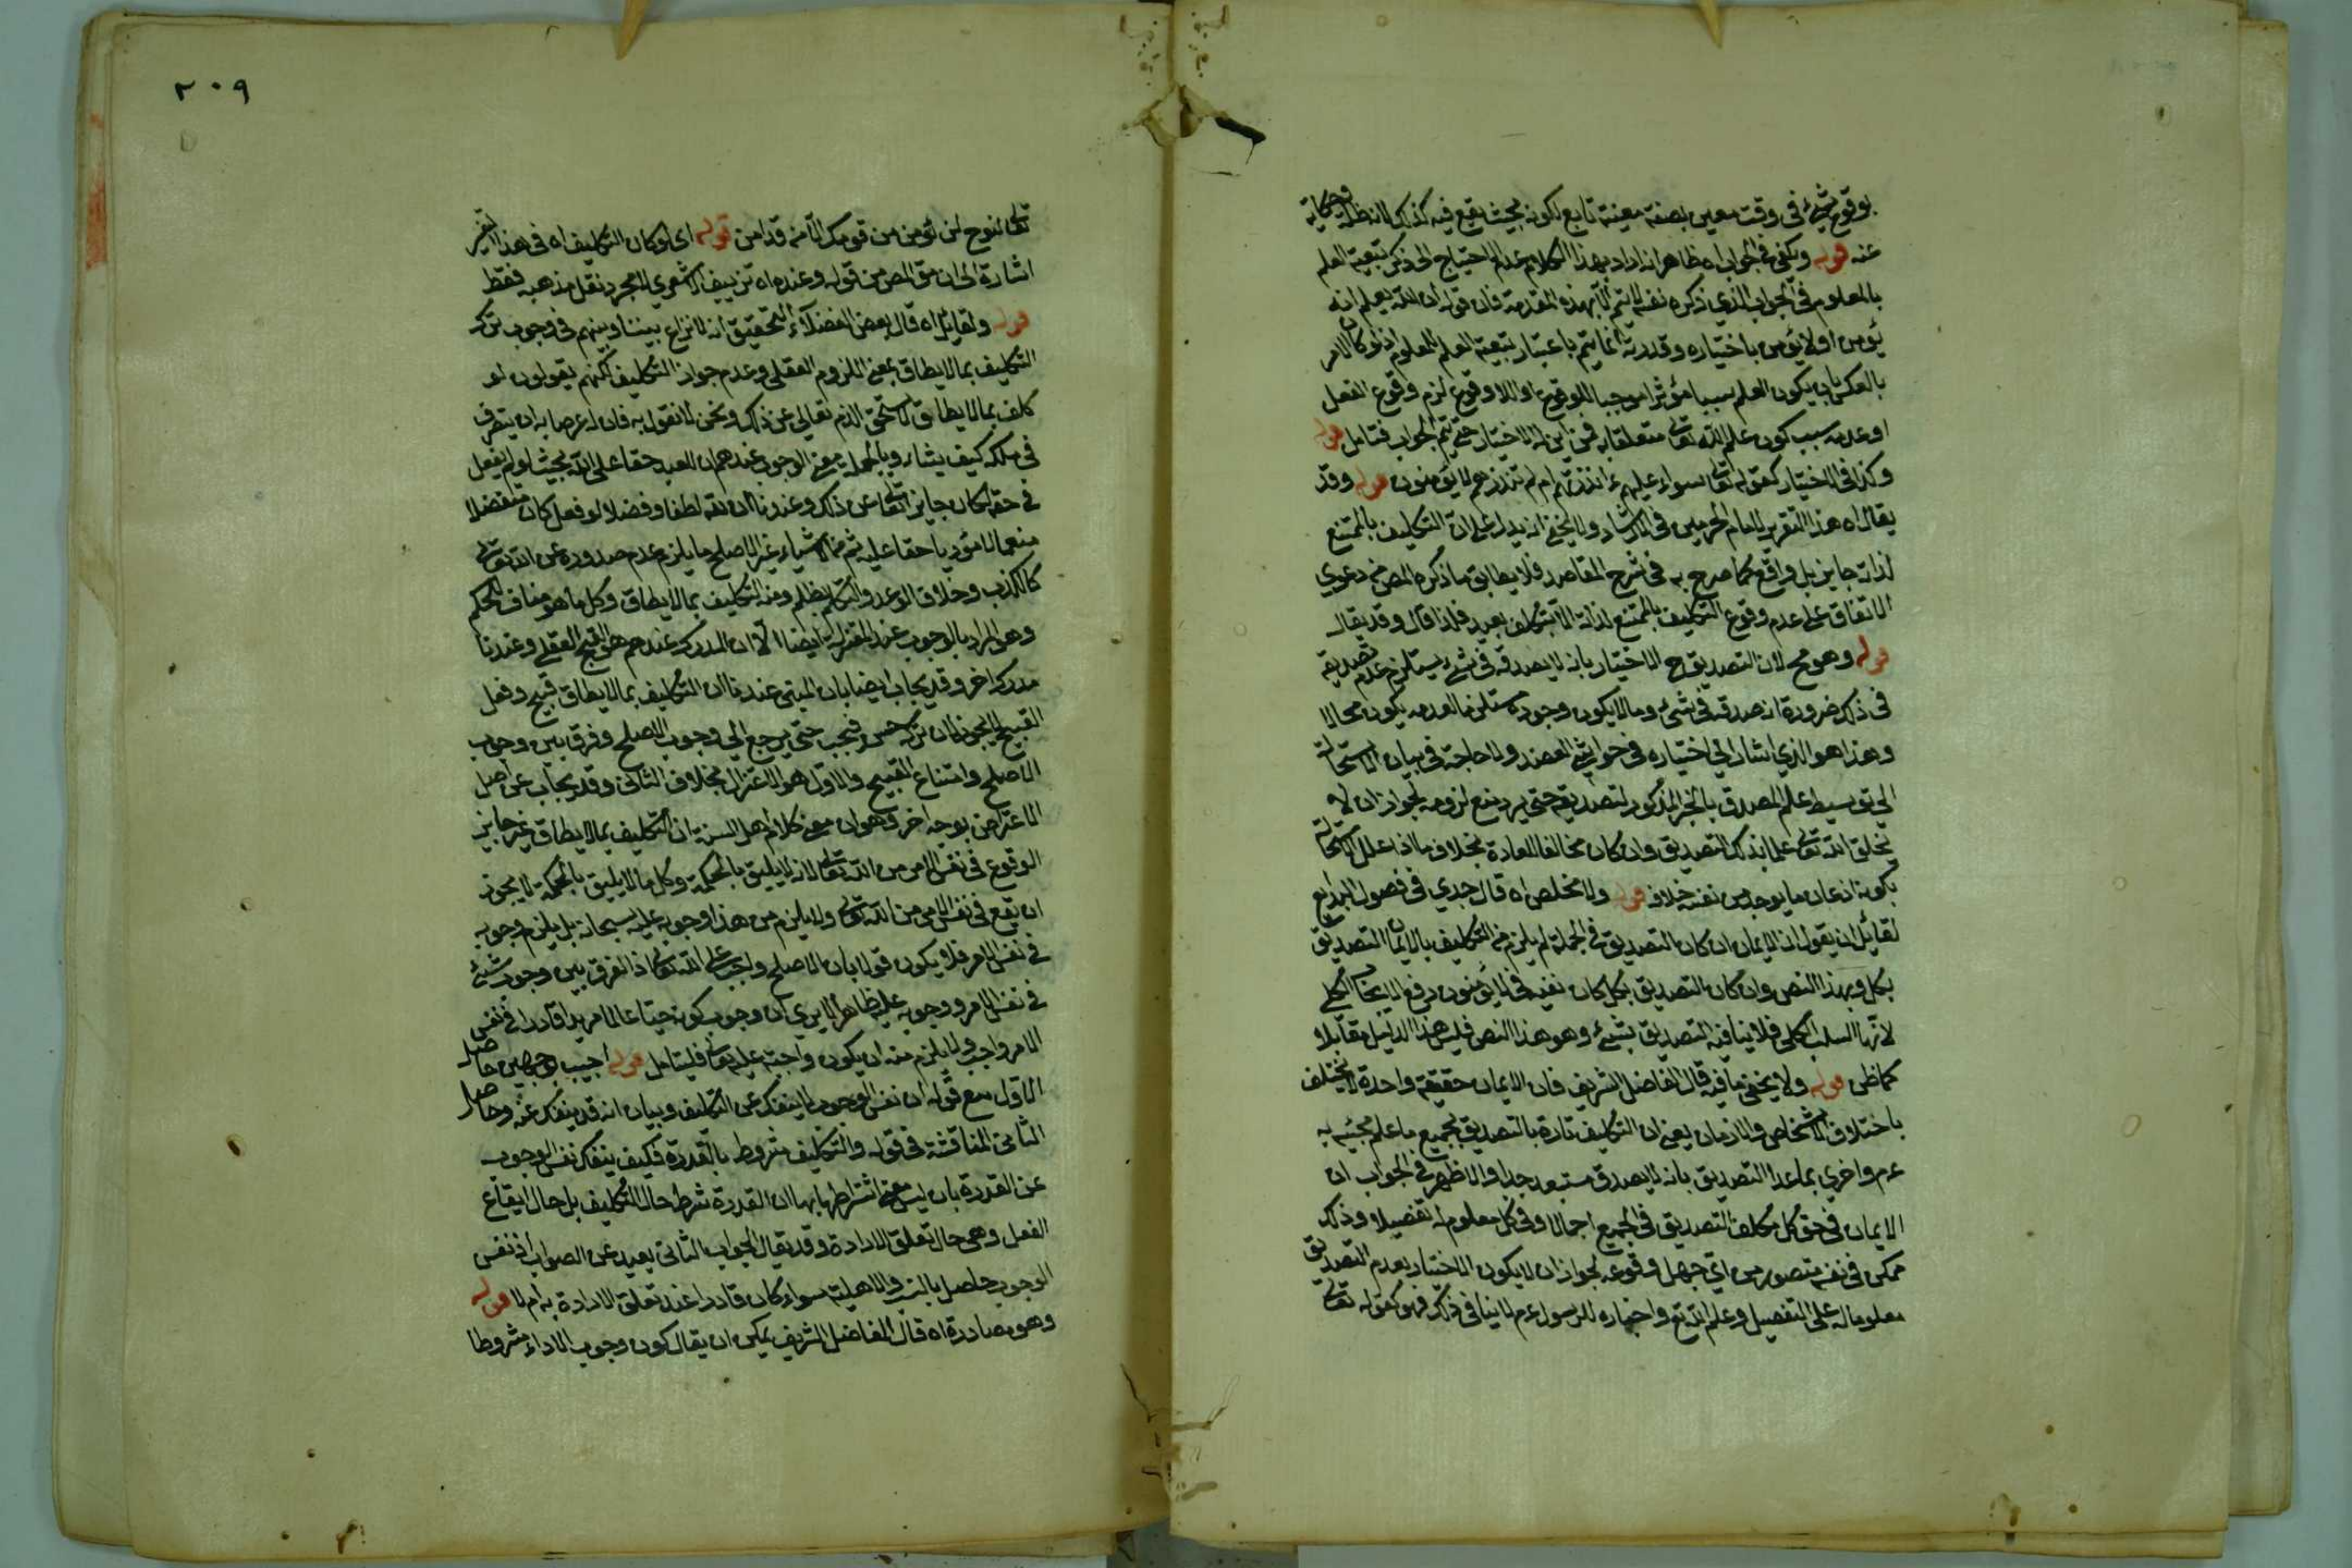 بوقوع شئ في وقت معين بصفة معينة تابع لكونه بحيث يقع فيه كذلك لانه ظله وحكاية
عنه قوله ويكفي في الجواب اه ظاهره انه اراد بهذا الكلام عدم الاحتياج الى ذكر تبعية العلم
بالمعلوم في الجواب الذي ذكره نفسه لا يتم الا بهذه المقدمة فان قوله ان الله يعلم انه
يؤمن اولا يؤمن باختياره وقدرته انما يتم باعتبار تبعية العلم للمعلوم اذ لو كان الامر
بالعكس بان يكون العلم سببا مؤثرا موجبا للوقوع او اللاوقوع لزم وقوع الفعل
او عدمه بسبب كون علم الله تعالى متعلقا به فمن اين له الاختيار حتى يتم الجواب فتامل قوله
وكذا في الاختيار كقوله تعالى سواء عليهم ءانذرتهم ام لم تنذرهم لا يؤمنون قوله وقد
يقال اه هذا التقرير لامام الحرمين في الارشاد ولا يخفى انه يدل على ان التكليف بالممتنع
لذاته جايز بل واقع كما صرح به في شرح المقاصد فلا يطابق ما ذكره المص من دعوى
الاتفاق على عدم وقوع التكليف بالممتنع لذاته الا بتكلف بعيد فلذا قال وقد يقال
قوله وهو مح لان التصديق ح الاختيار بانه لا يصدقه في شئ يستلزم عدم تصديقه
في ذلك ضرورة انه صدقه في شئ وما لا يكون وجوده مستلزما لعدمه يكون محالا
وهذا هو الذي اشار الى اختياره في حواشي العضد ولا حاجة في بيان الاستحالة
الى توسيط علم المصدق بالخبر المذكور لتصديقه حتى يرد منع لزومه لجواز ان لا
يخلق الله تعالى علما بذلك التصديق وان كان مخالفا للعادة بخلاف ما اذا علل الاستحالة
بكونه اذعان ما يوجد من نفسه خلافه قوله ولا مخلص اه قال جدي في فصول البدايع
لقائل ان يقول ان الايمان ان كان التصديق في الجملة لم يلزم من التكليف بالايمان التصديق
بكل وبهذا النص وان كان التصديق بكل كان نفيه في لا يؤمنون رفع الايجاب الكلي
لانها السلب الكلي فلا ينافيه التصديق بشئ وهو هذا النص فليس هذا الدليل مقابلا
كما ظن قوله ولا يخفى ما فيه قال الفاضل الشريف فان الايمان حقيقة واحدة لا يختلف
باختلاف الاشخاص والازمان يعني ان التكليف تارة بالتصديق بجميع ما علم مجيئه به
عم واخرى بما عدا التصديق بانه لا يصدق مستبعد جدا والاظهر في الجواب ان
الايمان في حق كل مكلف التصديق في الجميع اجمالا وفي كل معلوم له تفصيلا وذلك
ممكن في نفسه متصور من ابي جهل وقوعه لجواز ان لا يكون الاختيار بعدم التصديق
معلوما له على التفصيل وعلم الله تع واخباره للرسول عم لا ينافي ذلك فهو كقوله تعالى
٢٠٩
تعالى لنوح لن يؤمن من قومك الا من قد امن قوله اي لو كان التكليف اه في هذا التقرير
اشارة الى ان مق المص من قوله وعنده اه تزييف الاشعري لا مجرد نقل مذهبه فقط
قوله ولقايل اه قال بعض الفضلاء التحقيق انه لا نزاع بيننا وبينهم في وجوب ترك
التكليف بما لا يطاق بمعنى اللزوم العقلي وعدم جواز التكليف لكنهم يقولون لو
كلف بما لا يطاق لاستحق الذم تعالى عن ذلك ونحن لا نقول به فان له عرصا به ان يتصرف
في ملكه كيف يشاء وبالجملة معنى الوجوب عندهم ان للعبد حقا على الله بحيث لو لم يفعل
في حقه لكان جايزا تعالى عن ذلك وعندنا ان لله لطفا وفضلا لو فعل كان متفضلا
منعما لا مؤديا حقا عليه ثم من الاشياء غير الاصلح ما يلزم عدم صدوره عن الله تعالى
كالكذب وخلاف الوعد والتكليم بظلم ومنه التكليف بما لا يطاق وكل ما هو مناف للحكم
وهو المراد بالوجوب عند المعتزلة ايضا الا ان المدرك عندهم هو القبح العقلي وعندنا
مدرك اخر وقد يجاب ايضا بان المبتنى عندنا ان التكليف بما لا يطاق قبيح وفعل
القبيح لا يجوز لا ان تركه حسن فيجب حتى يرجع الى وجوب الاصلح وفرق بين وجوب
الاصلح وامتناع القبيح والاول هو الاعتزال بخلاف الثاني وقد يجاب عن اصل
الاعتراض بوجه اخر وهو ان معنى كلام اهل السنة ان التكليف بما لا يطاق غير جايز
الوقوع في نفس الامر من الله تعالى لانه لا يليق بالحكمة وكل ما لا يليق بالحكمة لا يجوز
ان يقع في نفس الامر من الله تعالى ولا يلزم من هذا وجوبه عليه سبحانه بل يلزم وجوبه
في نفس الامر فلا يكون قولا بان الاصلح واجب على الله تعالى اذ الفرق بين وجود شئ
في نفس الامر ووجوبه عليه ظاهر الا يرى ان وجوب كونه حيا عالما مريدا قادرا في نفس
الامر واجب ولا يلزم منه ان يكون واجبة عليه تعالى فليتامل قوله اجيب بوجهين حاصل
الاول منع قوله ان نفس الوجوب لا ينفك عن التكليف وبيان انه قد ينفك عنه وحاصل
الثاني المناقشة في قوله والتكليف مشروط بالقدرة فكيف ينفك نفس الوجوب
عن القدرة بان ليس معنى اشتراطها بها ان القدرة شرط حال التكليف بل حال ايقاع
الفعل وهي حال تعلق الارادة وقد يقال الجواب الثاني بعيد عن الصواب اذ نفس
الوجوب حاصل بالسبب والاهلية سواء كان قادرا عند تعلق الارادة به ام لا قوله
وهو مصادرة اه قال الفاضل الشريف يمكن ان يقال كون وجوب الاداء مشروطا